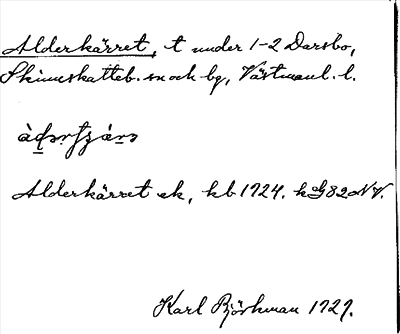 Alderkärret, t under 1-2 Darsbo,
Skinnskatteb. sn och bg, Västmanl. l.
Alderkärret ek, kb 1924. k G82 NV.
Karl Björkman 1929.